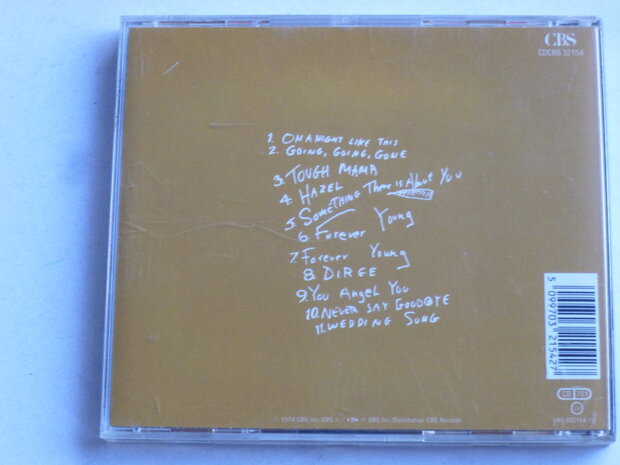 CBS
CDCBS 32154
1. ON A NIGHT LIKE THIS
2. GOING, GOING, GONE
3. TOUGH MAMA
4. HAZEL
5. SOMETHING There is About You
6. Forever Young
7. Forever Young
8. DIRGE
9. You Angel You
10. NEVER SAY GOODBYE
11. WEDDING SONG
5 099703 215427
℗ 1974 CBS Inc. CBS CBS © CBS Inc./Distribution CBS Records